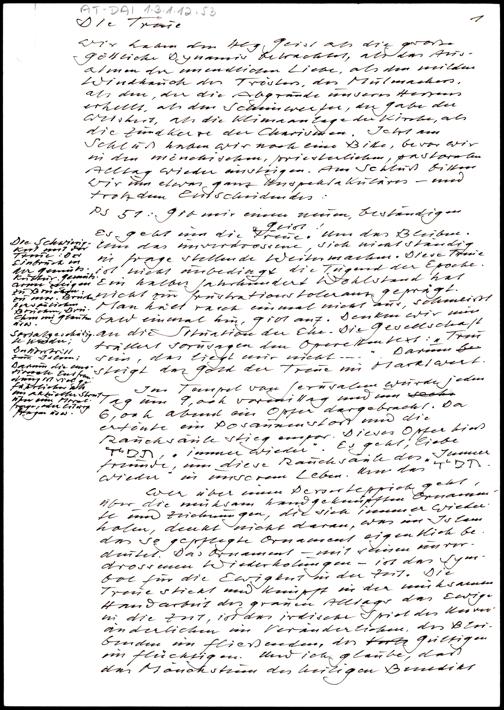 AT-DAI 1.3.1.12.53
1
Die Treue
Wir haben den Hlg. Geist als die große
göttliche Dynamis betrachtet, als das Aus-
atmen der unendlichen Liebe, als den milden
Windhauch des Trösters, des Mutmachers,
als den, der die Abgründe unseres Herzens
erhellt, als den Scheinwerfer, der Gabe der
Weisheit, als die Klimaanlage der Kirche, als
die Zündkerze der Charismen. Jetzt am
Schluß haben wir noch eine Bitte, bevor wir
in den mönchischen, priesterlichen, pastoralen
Alltag wieder einsteigen. Am Schluß bitten
wir um etwas ganz Unspektakuläres – und
trotzdem Entscheidendes:
Ps 51: Gib mir einen neuen, beständigen
Geist!
Es geht um die Treue. Um das Bleiben.
Um das unverdrossene, sich nicht ständig
in Frage stellende Weitermachen. Diese Treue
ist nicht unbedingt die Tugend der Epoche.
Ein halbes Jahrhundert Wohlstand hat
nicht zur Frustrationstoleranz geprägt.
Man hält rasch einmal nicht aus, schmeißt
bald einmal hin, gibt auf. Denken wir nur
an die Situation der Ehe. Die Gesellschaft
trällert sozusagen den Operettentext: „Treu
sein, das liegt mir nicht ..." Darum
steigt das Gold der Treue im Marktwert.
Im Tempel von Jerusalem wurde jeden
Tag um 9,00h vormittag und um
6,00h abend ein Opfer dargebracht. Da
ertönte ein Posaunenstoß und die
Rauchsäule stieg empor. Dieses Opfer hieß
„immer wieder". Es geht, liebe
Freunde, um diese Rauchsäule des „Immer
wieder" in unserem Leben. Um das
Wer über einen Perserteppich geht,
über die mühsam handgeknüpften Ornamen-
te und Zeichnungen, die sich immer wieder-
holen, denkt nicht daran, was im Islam
das so gepflegte Ornament eigentlich be-
deutet. Das Ornament – mit seinen unver-
drossenen Wiederholungen – ist das Sym-
bol für die Ewigkeit in der Zeit. Die
Treue stickt und knüpft in der mühsamen
Handarbeit des grauen Alltags das Ewige
in die Zeit, ist das irdische Spiel des Unver-
änderlichen im Veränderlichen, des Blei-
benden im Fließenden, des Gültigen
im Flüchtigen. Und ich glaube, daß
das Mönchstum des heiligen Benedikt
Die Schwierig-
keit mit der
Treue: Der
Einbruch in